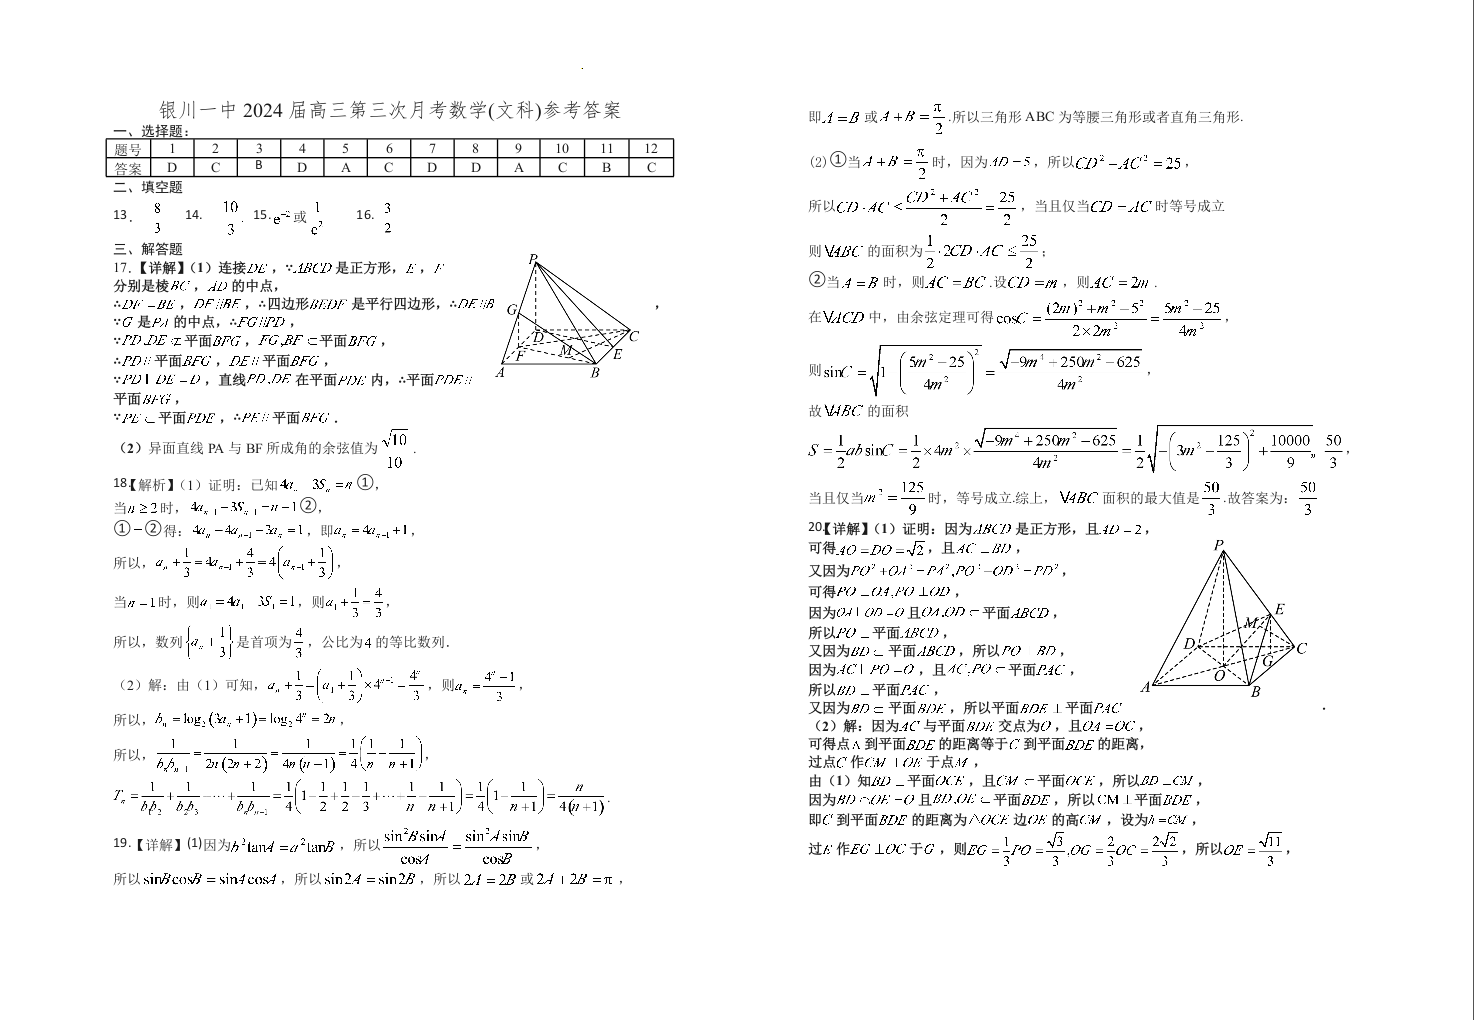 银川一中 2024 届高三第三次月考数学(文科)参考答案
一、选择题：
题号 1 2 3 4 5 6 7 8 9 10 11 12
答案 D C B D A C D D A C B C
二、填空题
13. 8/3 14. 10/3 15. e⁻² 或 1/e² 16. 3/2
三、解答题
17.【详解】（1）连接DE，∵ABCD 是正方形，E，F
分别是棱BC，AD 的中点，
∴DF=BE，DF∥BE，∴四边形BEDF 是平行四边形，∴DE∥B ，
∵G 是PA 的中点，∴FG∥PD，
∵PD,DE⊄平面BFG，FG,BF⊂平面BFG，
∴PD∥平面BFG，DE∥平面BFG，
∵PD∩DE=D，直线PD,DE 在平面PDE 内，∴平面PDE∥
平面BFG，
∵PE⊂平面PDE，∴PE∥平面BFG．
P
G
D
C
F
M
E
A
B
（2）异面直线 PA 与 BF 所成角的余弦值为 √10/10．
18.【解析】（1）证明：已知 4aₙ−3Sₙ=n ①，
当n≥2 时，4aₙ₋₁−3Sₙ₋₁=n−1②，
①−②得：4aₙ−4aₙ₋₁−3aₙ=1，即aₙ=4aₙ₋₁+1，
所以，aₙ+1/3=4aₙ₋₁+4/3=4(aₙ₋₁+1/3)，
当n=1时，则a₁=4a₁−3S₁=1，则a₁+1/3=4/3，
所以，数列{aₙ+1/3}是首项为4/3，公比为4的等比数列．
（2）解：由（1）可知，aₙ+1/3=(a₁+1/3)×4ⁿ⁻¹=4ⁿ/3，则aₙ=(4ⁿ−1)/3，
所以，bₙ=log₂(3aₙ+1)=log₂4ⁿ=2n，
所以，1/(bₙbₙ₊₁)=1/(2n(2n+2))=1/(4n(n+1))=1/4(1/n−1/(n+1))，
Tₙ=1/(b₁b₂)+1/(b₂b₃)+⋯+1/(bₙbₙ₊₁)=1/4(1−1/2+1/2−1/3+⋯+1/n−1/(n+1))=1/4(1−1/(n+1))=n/(4(n+1))．
19.【详解】(1)因为b²tanA=a²tanB，所以sin²BsinA/cosA=sin²AsinB/cosB，
所以sinBcosB=sinAcosA，所以sin2A=sin2B，所以2A=2B 或2A+2B=π，
即A=B 或A+B=π/2.所以三角形 ABC 为等腰三角形或者直角三角形.
(2) ①当A+B=π/2 时，因为AD=5，所以CD²+AC²=25，
所以CD·AC≤(CD²+AC²)/2=25/2，当且仅当CD=AC 时等号成立
则 VABC 的面积为1/2·2CD·AC≤25/2；
②当A=B 时，则AC=BC .设CD=m，则AC=2m．
在VACD 中，由余弦定理可得cosC=((2m)²+m²−5²)/(2×2m²)=(5m²−25)/(4m²)，
则sinC=√(1−((5m²−25)/(4m²))²)=√(−9m⁴+250m²−625)/(4m²)，
故VABC 的面积
S=1/2absinC=1/2×4m²×√(−9m⁴+250m²−625)/(4m²)=1/2√(−(3m²−125/3)²+10000/9)„ 50/3，
当且仅当m²=125/9 时，等号成立.综上，VABC 面积的最大值是50/3.故答案为：50/3
20.【详解】（1）证明：因为ABCD 是正方形，且AD=2，
可得AO=DO=√2，且AC⊥BD，
又因为PO²+OA²=PA²,PO²+OD²=PD²，
可得PO⊥OA,PO⊥OD，
因为OA∩OD=O 且OA,OD⊂平面ABCD，
所以PO⊥平面ABCD，
又因为BD⊂平面ABCD，所以PO⊥BD，
因为AC∩PO=O，且AC,PO⊂平面PAC，
所以BD⊥平面PAC，
又因为BD⊂平面BDE，所以平面BDE⊥平面PAC ．
P
E
M
D
C
G
O
A
B
（2）解：因为AC 与平面BDE 交点为O，且OA=OC，
可得点A 到平面BDE 的距离等于C 到平面BDE 的距离，
过点C 作CM⊥OE 于点M，
由（1）知BD⊥平面OCE，且CM⊂平面OCE，所以BD⊥CM，
因为BD∩OE=O 且BD,OE⊂平面BDE，所以CM⊥平面BDE，
即C 到平面BDE 的距离为△OCE 边OE 的高CM，设为h=CM，
过E 作EG⊥OC 于G，则EG=1/3PO=√3/3,OG=2/3OC=2√2/3，所以OE=√11/3，